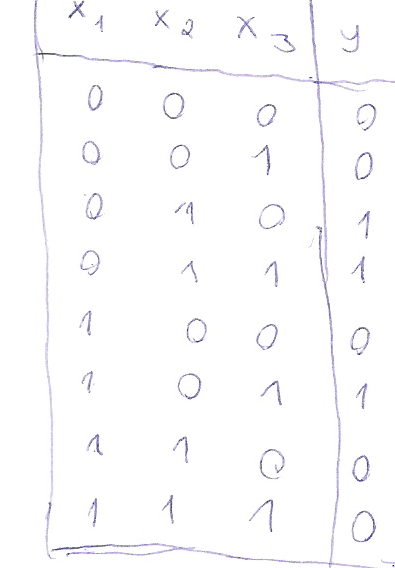 x1 x2 x3 y
0 0 0 0
0 0 1 0
0 1 0 1
0 1 1 1
1 0 0 0
1 0 1 1
1 1 0 0
1 1 1 0